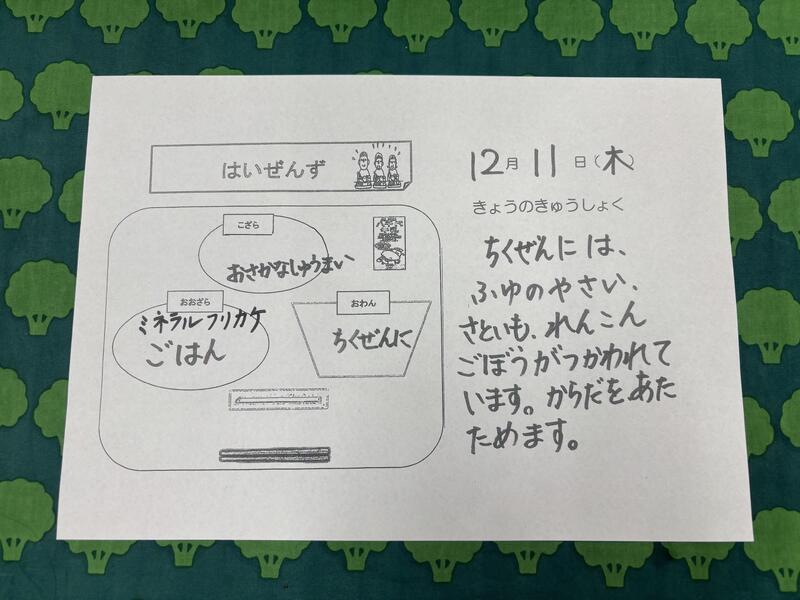 はいぜんず
こざら
おさかなしゅうまい
おおざら
ミネラルフリカケ
ごはん
おわん
ちくぜんに
12月11日(木)
きょうのきゅうしょく
ちくぜんには、
ふゆのやさい、
さといも、れんこん
ごぼうがつかわれて
います。からだをあた
ためます。